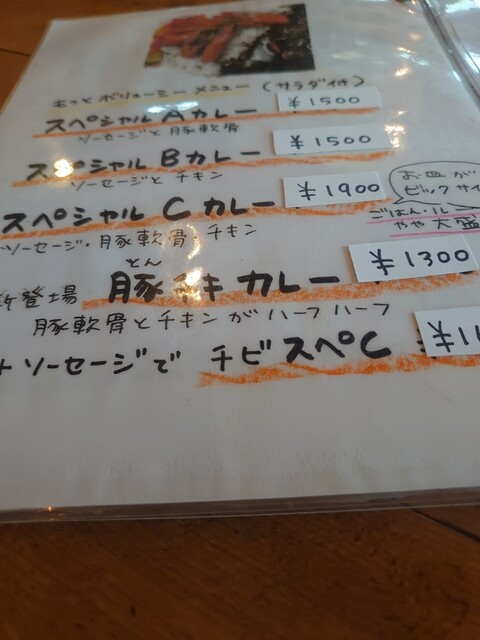 もっとボリューミーメニュー (サラダ付)
スペシャル A カレー ¥1500
ソーセージと豚軟骨
スペシャル B カレー ¥1500
ソーセージと チキン
スペシャル C カレー ¥1900
ソーセージ・豚軟骨・チキン
お皿が
ビックサイ
ごはん・ル
やや大盛
とん
新登場 豚チキ カレー ¥1300
豚軟骨とチキンがハーフハーフ
+ ソーセージで チビスペC